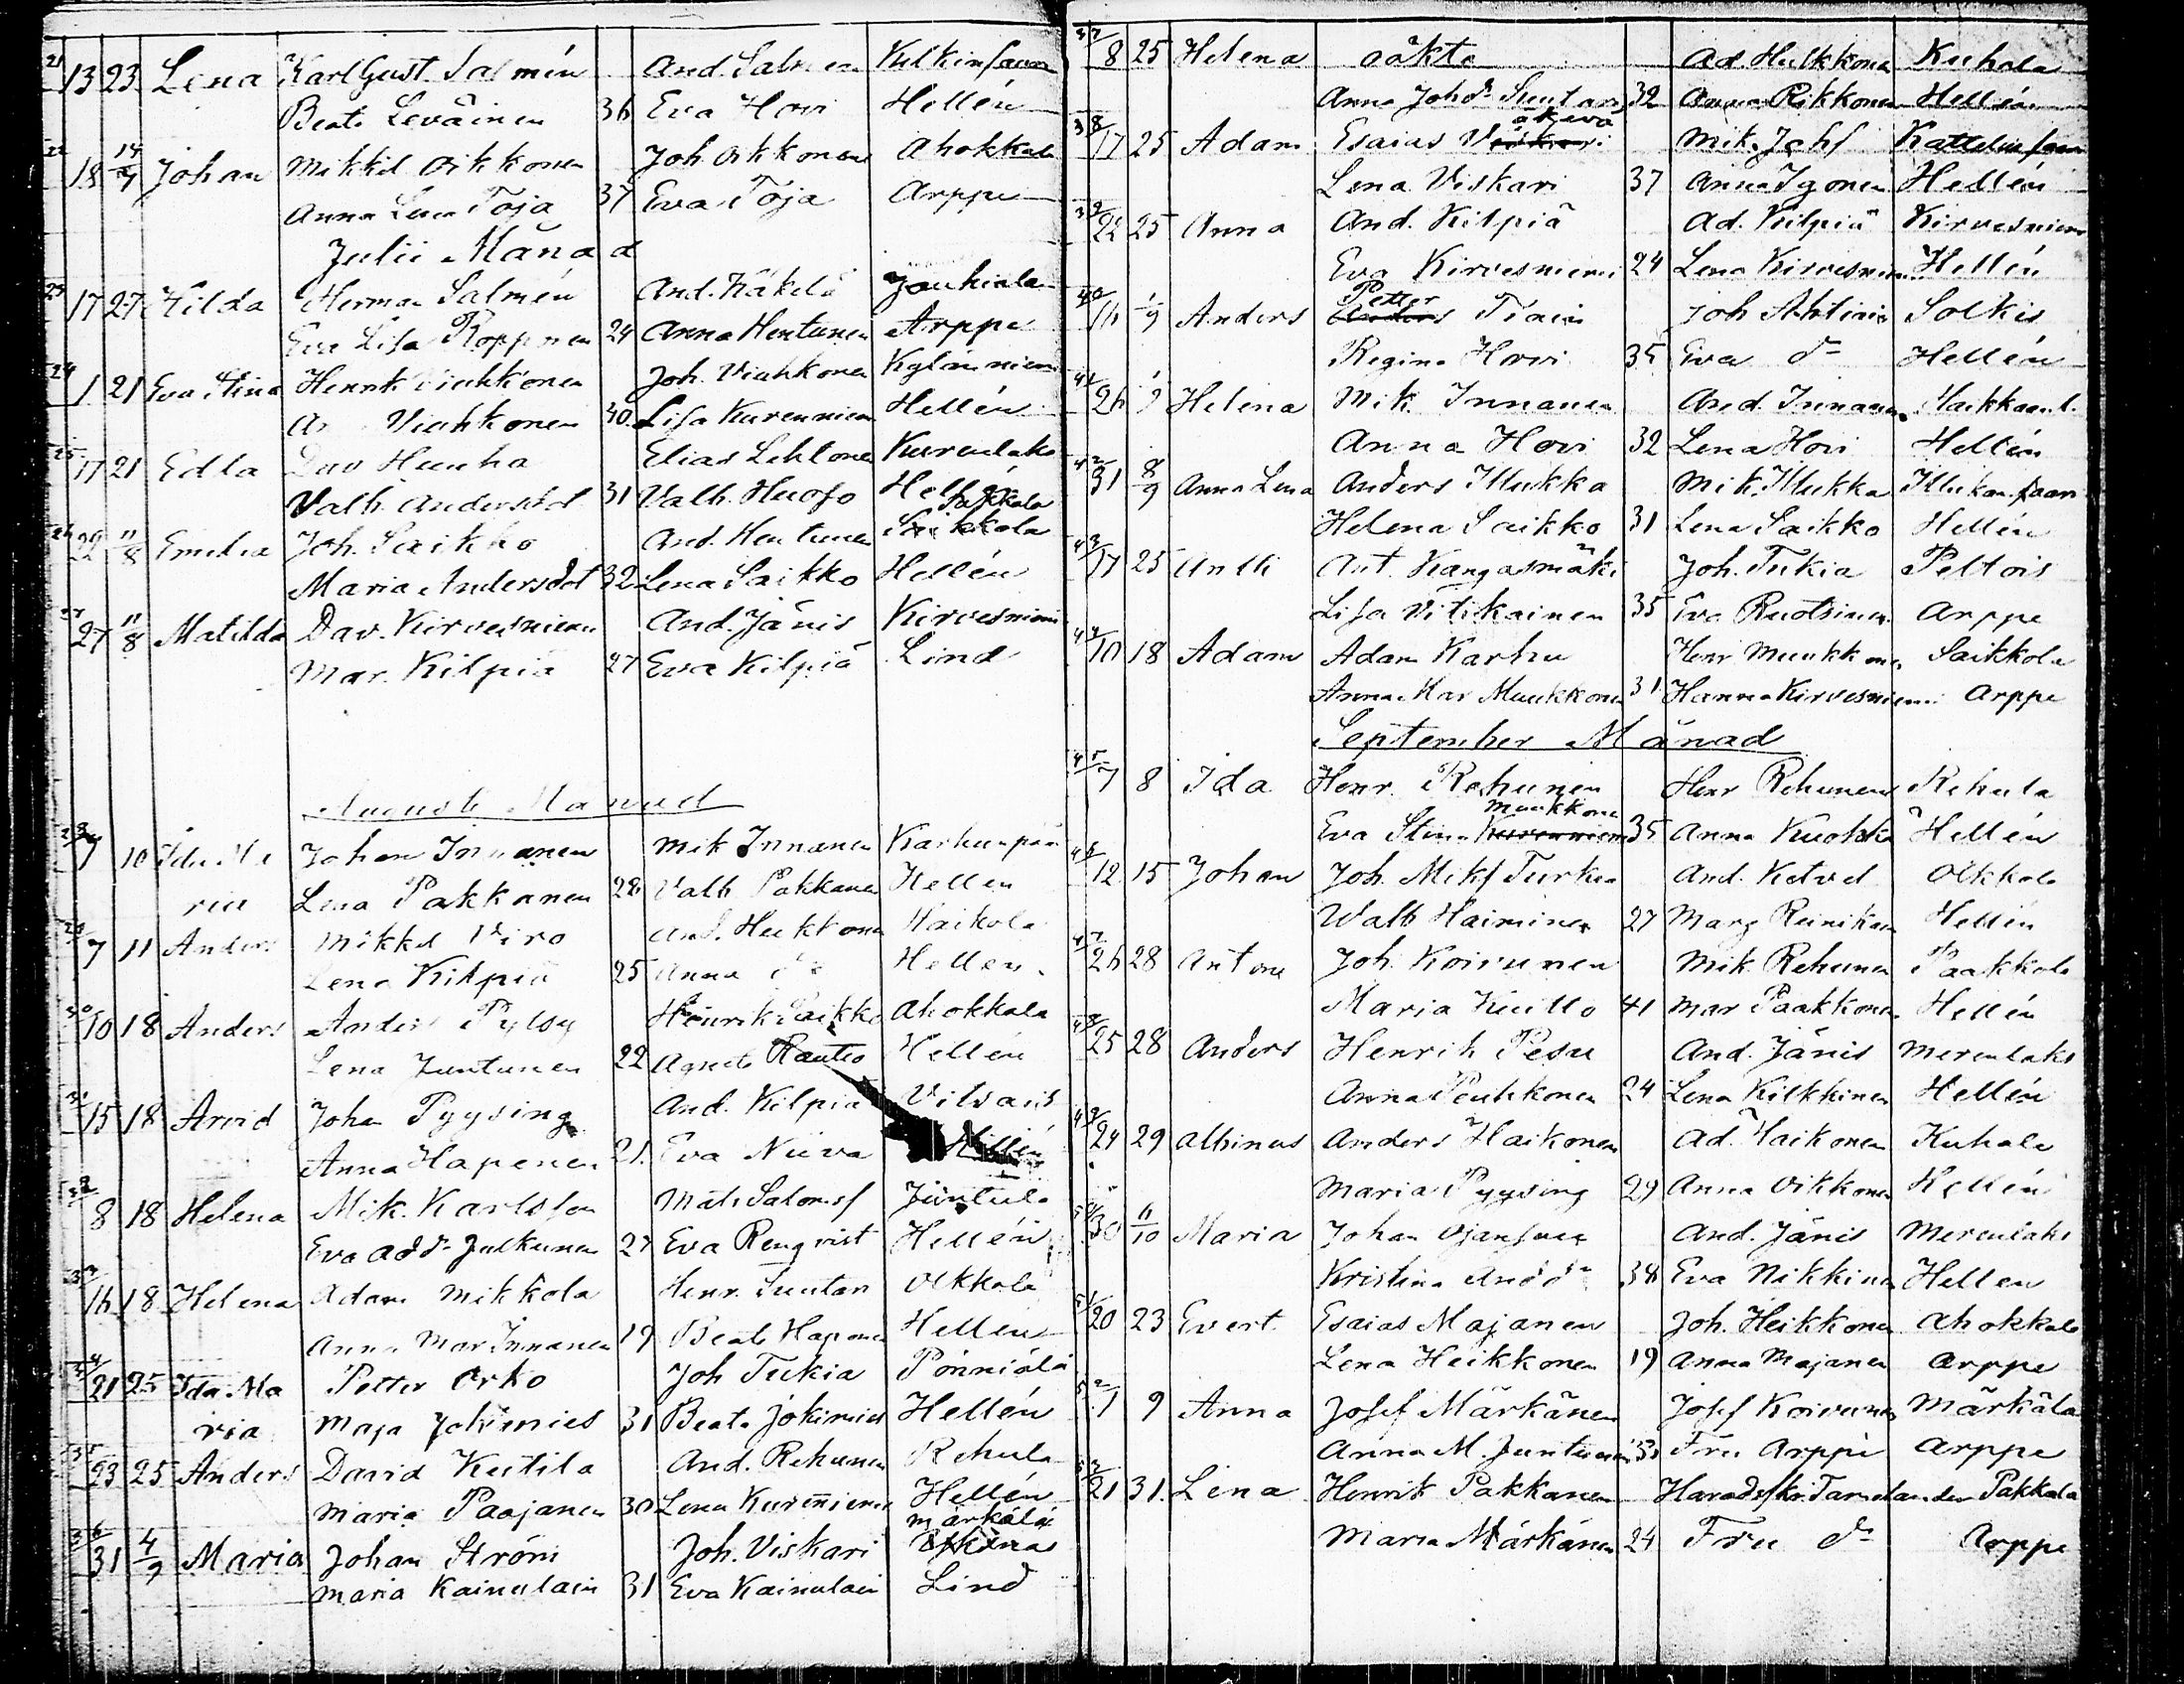 21 13 23 Lena Karl Gust. Salmén And. Salmén
Beata Leväinen 36 Eva Hovi Hellén
22 18 14/7 Johan Mikkel Oikkonen Joh. Oikkonen Ahokkala
Anna Lena Töja 37 Eva Töja Arppe
Julii Månad
23 17 27 Hilda Herman Salmén And. Käkelä Jouhiala
Eva Lisa Ropponen 24 Anna Hentunen Arppe
24 1 21 Eva Stina Henrik Viuhkonen Joh. Viuhkonen Kyläniemi
Viuhkonen 40 Lisa Kurenniemi Hellén
25 17 21 Edla Dav Huuha Elias Lehtonen Kurenlaks
Valb. Andersdot 31 Valb. Huoso
26 22 11/8 Emelia Joh. Saikko And. Hentunen Saikkola
Maria Andersdot 32 Lena Saikko Hellén
27 27 11/8 Matilda Dav. Kirvesniemi And. Jänis Kirvesniemi
Mar. Kilpiä 27 Eva Kilpiä Lind
Augusti Månad
28 7 10 Ida Ma Johan Innanen Mik Innanen Karhunpää
ria Lena Pakkanen 28 Valb Pakkanen Hellen
29 7 11 Anders Mikkel Viro And. Heikkonen
Lena Kilpiä 25 Anna do Hellen
30 10 18 Anders Anders Pylsy Henrik Saikko Ahokkala
Lena Juntunen 22 Agneta Rautio Hellén
31 15 18 Arvid Johan Pyysing And. Kilpiä
Anna Hapenen 21. Eva Niiva Hellén
32 8 18 Helena Mik. Karlsson Mats Salomsf Juntula
Eva Add:r Julkunen 27 Eva Renqvist Hellén
33 16 18 Helena Adam Mikkola Henr. Suntar Olkkola
Anna Mar Innanen 19 Beata Haponen Hellén
34 21 25 Ida Ma Petter Orko Joh Tukia Pönniälä
ria Maja Jokimies 31 Beata Jokimies Hellén
35 23 25 Anders David Kutila And. Rehunen Rehula
Maria Paajanen 30 Lena Kurenniemi Hellén
36 31 4/9 Maria Johan Ström Joh. Viskari Märkälä
Maria Kainulain 31 Eva Kainulain Lind
37 8 25 Helena oäkta Ad. Hulkkonen Kuhala
Anna Joh:dr Suntari 32 Anna Rikkonen Hellén
38 17 25 Adam Esaias Mik. Johf
Lena Viskari 37 Anna Igonen Hellén
39 22 25 Anna And. Kilpiä Ad. Kilpiä Kirvesniemi
Eva Kirvesniemi 24 Lena Kirvesniemi Hellén
40 16 1/9 Anders Petter Joh Solkis
Regina Hovi 35 Eva do Hellén
41 26 1/9 Helena Mik. Innanen And. Innanen
Anna Hovi 32 Lena Hovi Hellén
42 31 8/9 Anna Lena Anders Illukka Mik. Illukka Illukansaari
Helena Saikko 31 Lena Saikko Hellén
43 17 25 Antti Ant. Kangasmäki Joh. Tukia Peltois
Lisa Vitikainen 35 Eva Ruotsinen Arppe
44 10 18 Adam Adam Karhu Henr Muukkonen Saikkola
Anna Mar Muukkonen 31 Hanna Kirvesniemi Arppe
September Månad
45 7 8 Ida Henr. Rehunen Henr Rehunen Rehula
Muukkonen
Eva Stina Kurenniemi 35 Anna Hellén
46 12 15 Johan Joh. Mikf Turkia And. Ketvel Olkkola
Walb Haiminen 27 Marg Reinikain Hellén
47 26 28 Anton Joh. Koivunen Mik. Rehunen Paakkola
Maria Kuitto 41 Mar Paakkonen Hellén
48 25 28 Anders Henrik Pesu And. Jänis Merenlaks
Anna Peuhkonen 24 Lena Kilkkinen Hellén
49 24 29 Albinus Anders Haikonen Ad. Haikonen Kuhala
Maria Pyysing 29 Anna Oikkonen Hellén
50 30 6/10 Maria Johan Ojansuu And. Jänis Merenlaks
Kristina And:dr 38 Eva Nikkinen Hellen
51 20 23 Evert Esaias Majanen Joh. Heikkonen Ahokkala
Lena Heikkonen 19 Anna Majanen Arppe
52 1 9 Anna Josef Märkänen Josef Koivunen Märkälä
Anna M. Juntunen 33 Fru Arppe Arppe
53 21 31. Lena Henrik Pakkanen Haradsskr. Tamelander Pakkala
Maria Märkänen 24 Fru do Arppe